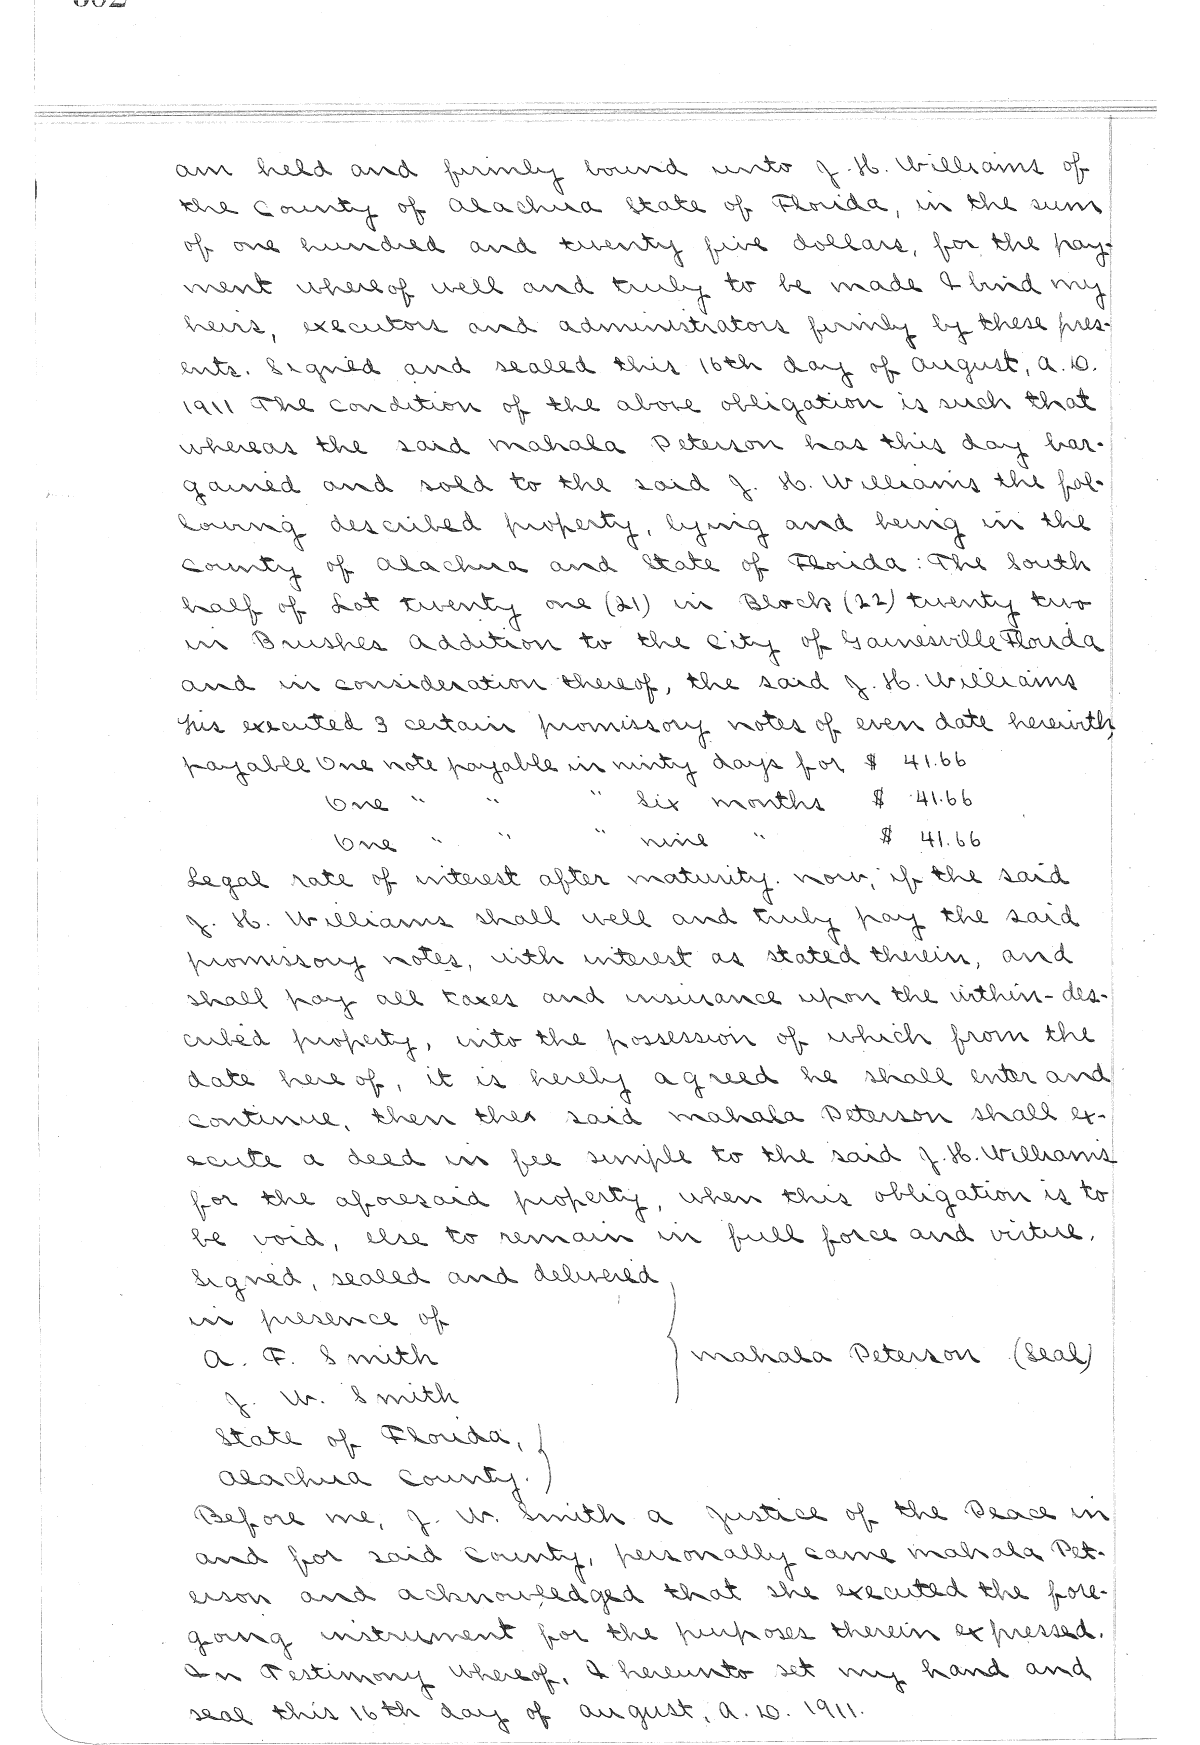 am held and firmly bound unto J. H. Williams of
the County of Alachua State of Florida, in the sum
of one hundred and twenty five dollars, for the pay-
ment whereof well and truly to be made I bind my
heirs, executors and administrators firmly by these pres-
ents. Signed and sealed this 16th day of August, A. D.
1911 The condition of the above obligation is such that
whereas the said Mahala Peterson has this day bar-
gained and sold to the said J. H. Williams the fol-
lowing described property, lying and being in the
County of Alachua and State of Florida: The South
half of Lot twenty one (21) in Block (22) twenty two
in Brushes Addition to the City of Gainesville Florida
and in consideration thereof, the said J. H. Williams
his executed 3 certain promissory notes of even date herewith,
payable One note payable in ninty days for $ 41.66
One " " " Six months $ 41.66
One " " " nine " $ 41.66
Legal rate of interest after maturity. Now, if the said
J. H. Williams shall well and truly pay the said
promissory notes, with interest as stated therein, and
shall pay all taxes and insurance upon the within-des-
cribed property, into the possession of which from the
date hereof, it is hereby agreed he shall enter and
continue, then the said Mahala Peterson shall ex-
ecute a deed in fee simple to the said J. H. Williams
for the aforesaid property, when this obligation is to
be void, else to remain in full force and virtue.
Signed, sealed and delivered
in presence of
A. F. Smith
Mahala Peterson (Seal)
J. W. Smith
State of Florida,
Alachua County.
Before me, J. W. Smith a Justice of the Peace in
and for said County, personally came Mahala Pet-
erson and acknowledged that she executed the fore-
going instrument for the purposes therein expressed.
In Testimony Whereof, I hereunto set my hand and
seal this 16th day of August, A. D. 1911.